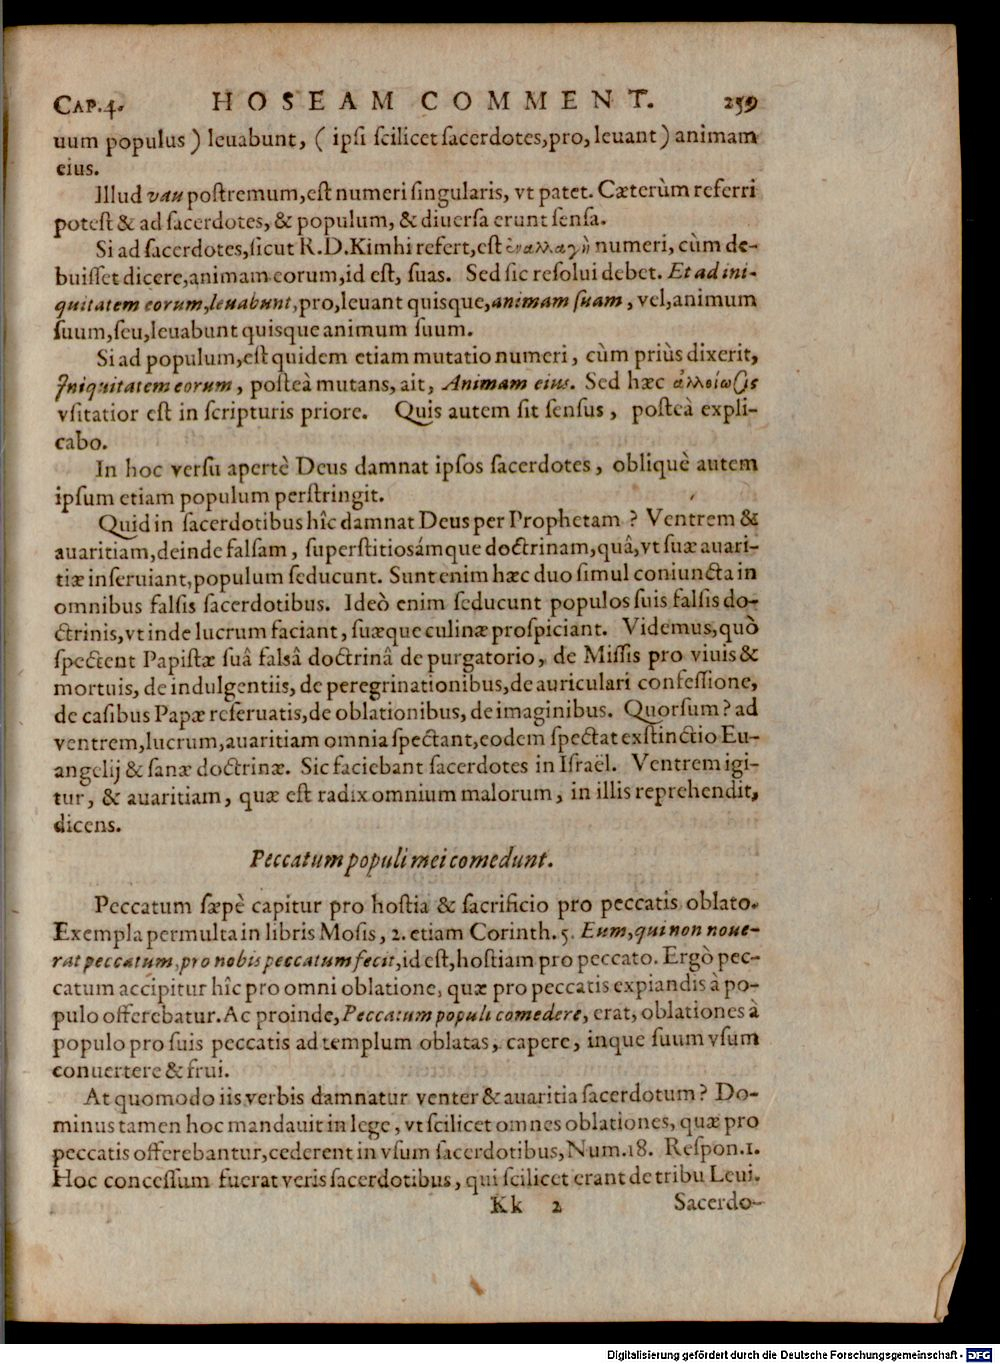 CAP.4. HOSEAM COMMENT. 259
uum populus) leuabunt, (ipſi ſcilicet ſacerdotes,pro, leuant) animam
eius.
Illud vau poſtremum,eſt numeri ſingularis, vt patet. Cæterùm referri
poteſt & ad ſacerdotes, & populum, & diuerſa erunt ſenſa.
Si ad ſacerdotes,ſicut R.D.Kimhi refert,eſt ἐναλλαγὴ numeri, cùm de-
buiſſet dicere,animam eorum,id eſt, ſuas. Sed ſic reſolui debet. Et ad ini-
quitatem eorum,leuabunt,pro,leuant quiſque,animam ſuam, vel,animum
ſuum,ſeu,leuabunt quiſque animum ſuum.
Si ad populum,eſt quidem etiam mutatio numeri, cùm priùs dixerit,
Iniquitatem eorum, poſteà mutans, ait, Animam eius. Sed hæc ἀλλοίωσις
vſitatior eſt in ſcripturis priore. Quis autem ſit ſenſus, poſteà expli-
cabo.
In hoc verſu apertè Deus damnat ipſos ſacerdotes, obliquè autem
ipſum etiam populum perſtringit.
Quid in ſacerdotibus hîc damnat Deus per Prophetam? Ventrem &
auaritiam,deinde falſam, ſuperſtitioſámque doctrinam,quâ,vt ſuæ auari-
tiæ inſeruiant,populum ſeducunt. Sunt enim hæc duo ſimul coniuncta in
omnibus falſis ſacerdotibus. Ideò enim ſeducunt populos ſuis falſis do-
ctrinis,vt inde lucrum faciant, ſuæque culinæ proſpiciant. Videmus,quò
ſpectent Papiſtæ ſuâ falſâ doctrinâ de purgatorio, de Miſſis pro viuis &
mortuis, de indulgentiis, de peregrinationibus,de auriculari confeſſione,
de caſibus Papæ reſeruatis,de oblationibus, de imaginibus. Quorſum? ad
ventrem,lucrum,auaritiam omnia ſpectant,eodem ſpectat exſtinctio Eu-
angelij & ſanæ doctrinæ. Sic faciebant ſacerdotes in Iſraël. Ventrem igi-
tur, & auaritiam, quæ eſt radix omnium malorum, in illis reprehendit,
dicens.
Peccatum populi mei comedunt.
Peccatum ſæpè capitur pro hoſtia & ſacrificio pro peccatis oblato.
Exempla permulta in libris Moſis, 2. etiam Corinth. 5. Eum,qui non noue-
rat peccatum,pro nobis peccatum fecit,id eſt,hoſtiam pro peccato. Ergò pec-
catum accipitur hîc pro omni oblatione, quæ pro peccatis expiandis à po-
pulo offerebatur. Ac proinde,Peccatum populi comedere, erat, oblationes à
populo pro ſuis peccatis ad templum oblatas, capere, inque ſuum vſum
conuertere & frui.
At quomodo iis verbis damnatur venter & auaritia ſacerdotum? Do-
minus tamen hoc mandauit in lege, vt ſcilicet omnes oblationes, quæ pro
peccatis offerebantur,cederent in vſum ſacerdotibus,Num.18. Reſpon.1.
Hoc conceſſum fuerat veris ſacerdotibus, qui ſcilicet erant de tribu Leui.
Kk 2 Sacerdo-
Digitalisierung gefördert durch die Deutsche Forschungsgemeinschaft - DFG